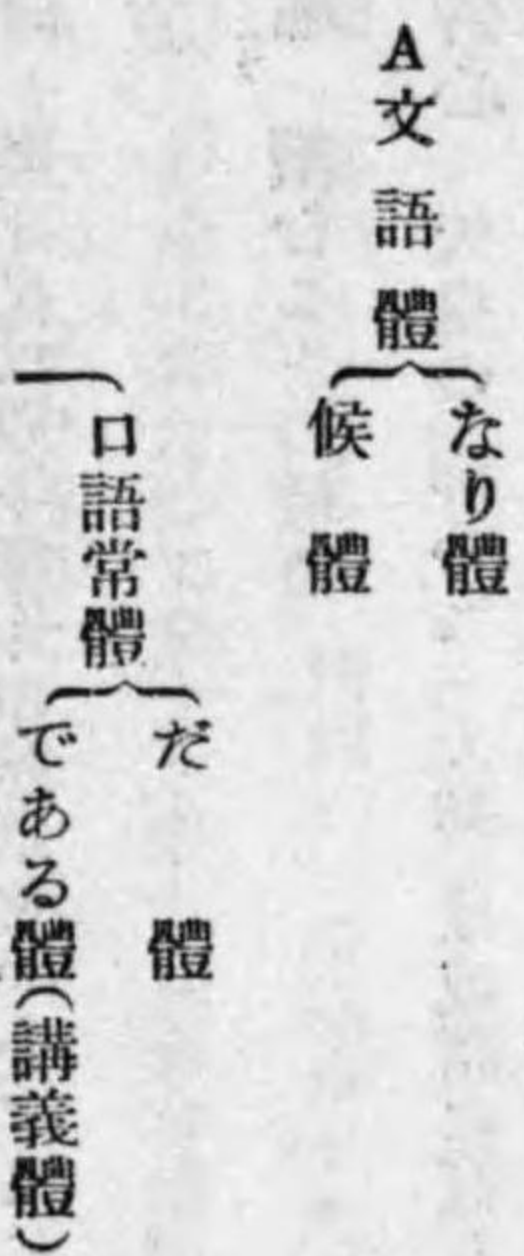 A文語體
なり體
候體
口語常體
だ體
である體(講義體)